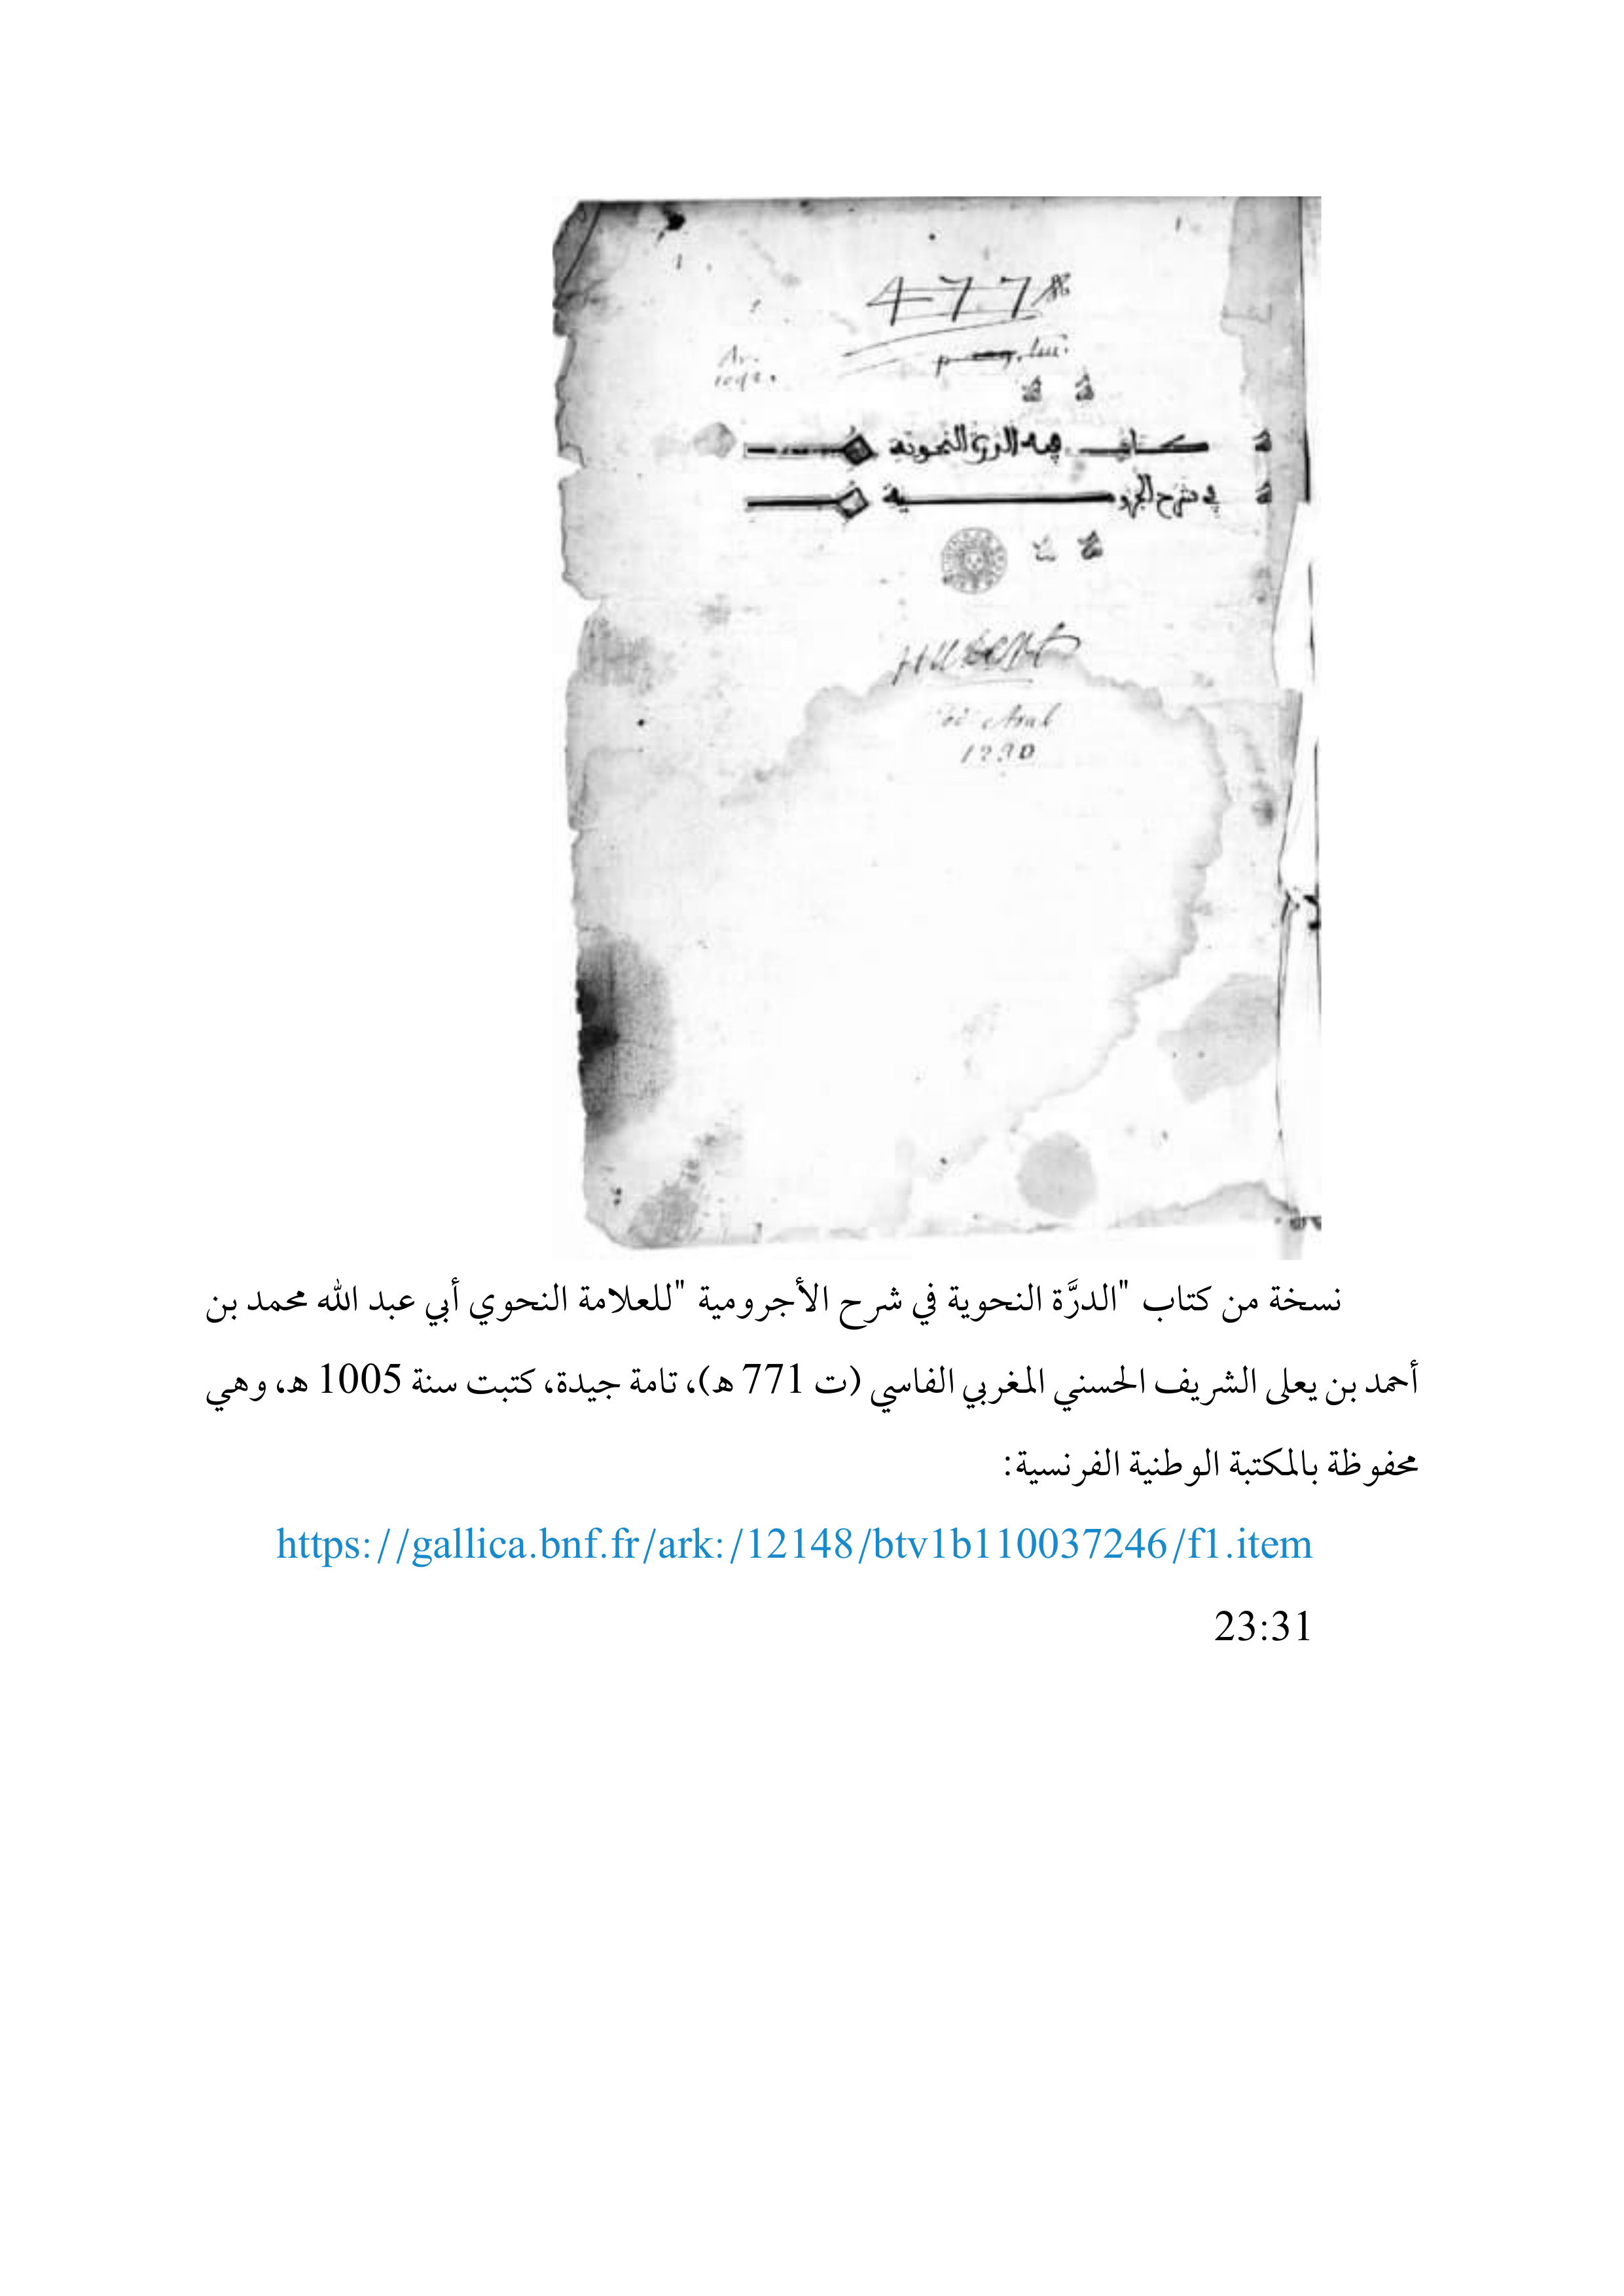 477
Ar.
1092.
كتاب فيه الدرة النحوية
في شرح الجرومية
Cod Arab
1230
نسخة من كتاب "الدرَّة النحوية في شرح الأجرومية "للعلامة النحوي أبي عبد الله محمد بن
أحمد بن يعلى الشريف الحسني المغربي الفاسي (ت 771 هـ)، تامة جيدة، كتبت سنة 1005 هـ، وهي
محفوظة بالمكتبة الوطنية الفرنسية:
https://gallica.bnf.fr/ark:/12148/btv1b110037246/f1.item
23:31